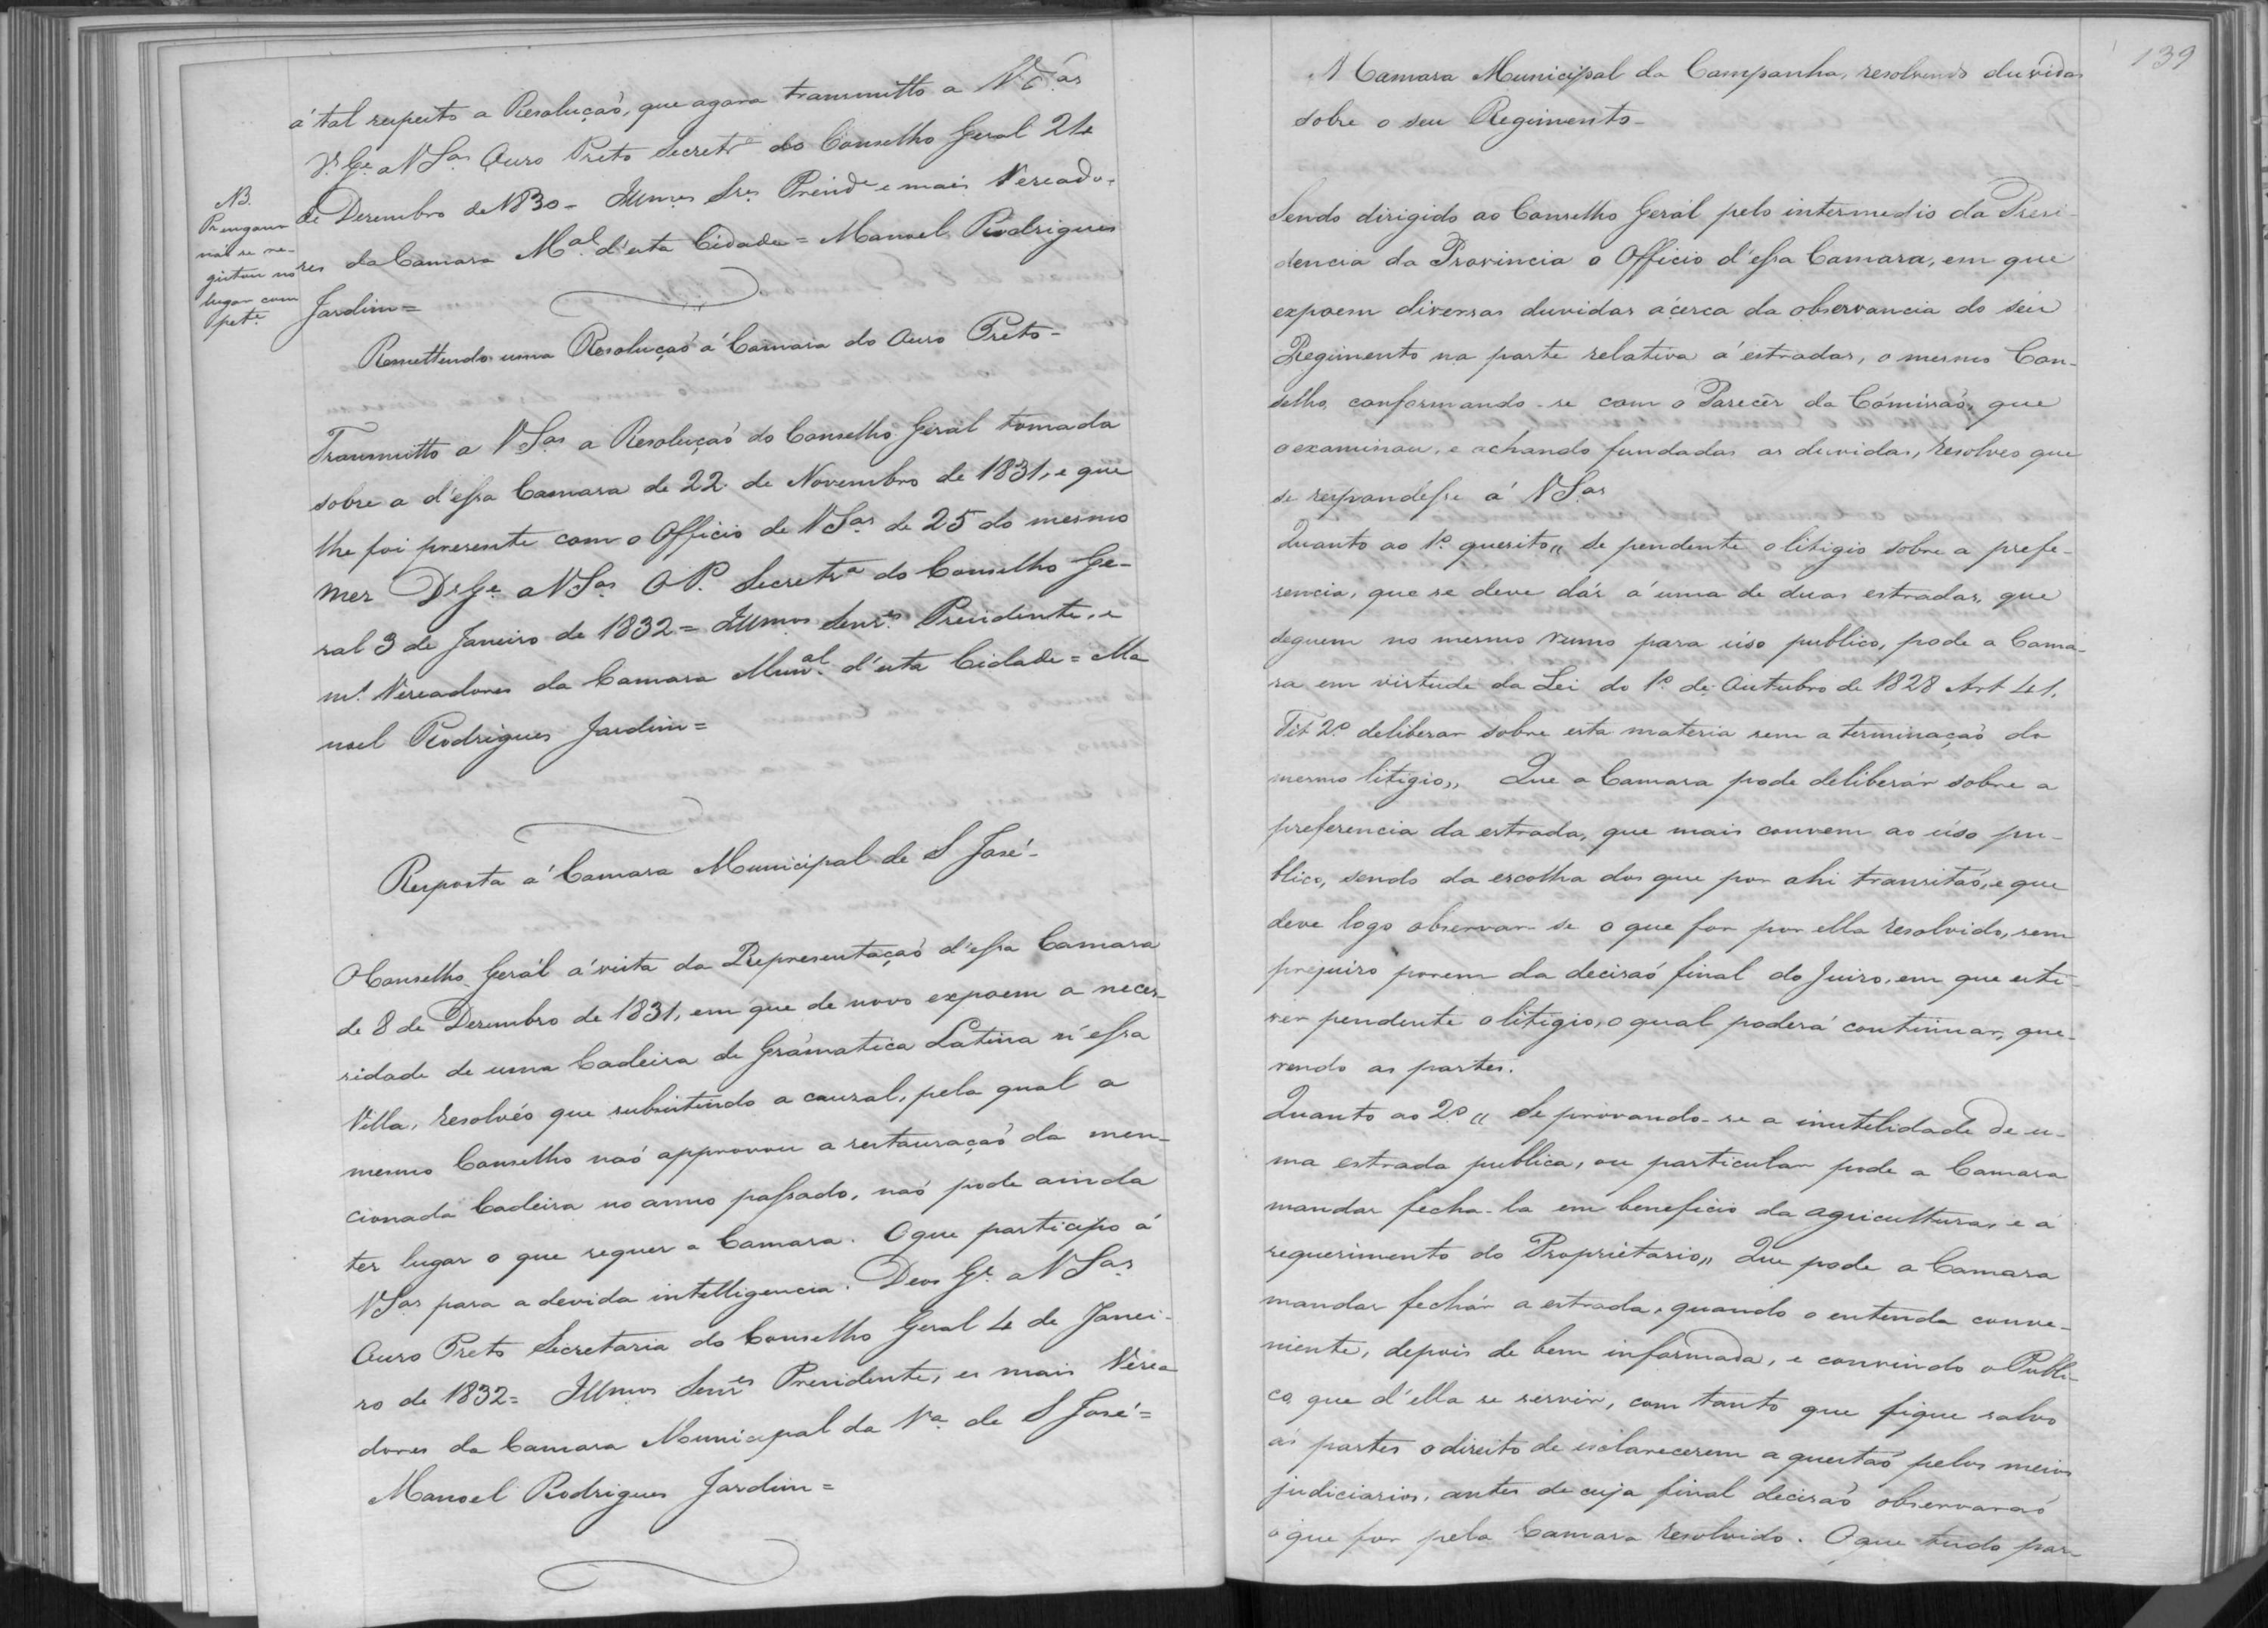 á tal respeito a Resoluçaõ, que agora transmitto a V Sas
Ds. Ge. a V Sas Ouro Preto Secretrª do Conselho Geral 24
de Dezembro de 1830 - Illmos Srs. Prezide e mais Vereado-
res da Camara Mal. d'esta Cidade = Manoel Rodrigues
Jardim =
NB.
Por engano
naõ se re-
gistou no
lugar com
pete.
Remettendo uma Resoluçaõ á Camara do Ouro Preto -
Transmitto a V Sas a Resoluçaõ do Conselho Geral tomada
sobre a d'essa Camara de 22 de Novembro de 1831, e que
lhe foi presente com o Officio de V Sas de 25 do mesmo
mez Ds Ge. a V Sas O P. Secretrª do Conselho Ge-
ral 3 de Janeiro de 1832 = Illmos Senrs. Presidente, e
ms. Vereadores da Camara Munal. d'esta Cidade = Ma
noel Rodrigues Jardim =
Resposta á Camara Municipal de S José -
O Conselho Gerál á vista da Representaçaõ d'essa Camara
de 8 de Dezembro de 1831, em que de novo expoem a neces-
sidade de uma Cadeira de Grámatica Latina n'essa
Villa, resolvéo que subsistindo a cauzal, pela qual o
mesmo Conselho naõ approvou a restauraçaõ da men-
cionada Cadeira no anno passado, naõ pode ainda
ter lugar o que requer a Camara. O que participo á
V Sas para a devida intelligencia. Deos Ge. a V Sas
Ouro Preto Secretaria do Conselho Geral 4 de Janei-
ro de 1832 = Illmos Senres Presidente, e mais Verea
dores da Camara Municipal da Vª de S José =
Manoel Rodrigues Jardim =
139
A Camara Municipal da Campanha, resolvendo duvidas
sobre o seu Regimento -
Sendo dirigido ao Conselho Gerál pelo intermedio da Presi-
dencia da Provincia o Officio d'essa Camara, em que
expoem diversas duvidas ácerca da observancia do seu
Regimento na parte relativa á estradas, o mesmo Con-
selho, conformando-se com o Parecêr da Cómisaõ, que
o examinou, e achando fundadas as duvidas, resolveo que
se respondésse á V Sas
Quanto ao 1º. quesito " Se pendente o litigio sobre a prefe-
rencia, que se deve dár á uma de duas estradas, que
seguem no mesmo rumo para uso publico, pode a Cama-
ra em virtude da Lei do 1º. de Outubro de 1828 Art 41.
Tit 2º deliberar sobre esta materia sem a terminaçaõ do
mesmo litigio,, Que a Camara pode deliberár sobre a
preferencia da estrada, que mais convem ao uso pu-
blico, sendo da escolha dos que por ahi transitaõ, e que
deve logo observar-se o que for por ella resolvido, sem
prejuizo porem da decisaõ final do Juizo, em que esti-
ver pendente o litigio, o qual poderá continuar, que-
rendo as partes.
Quanto ao 2º " Se provando-se a inutelidade de u-
ma estrada publica, ou particular pode a Camara
mandar fecha-la em beneficio da agricultura, e á
requerimento do Proprietario,, Que pode a Camara
mandar fechár a estrada, quando o entenda conve-
niente, depois de bem informada, e convindo o Publi-
co, que d'ella se servir, com tanto que fique salvo
ás partes o direito de esclarecerem a questaõ pelos meios
judiciarios, antes de cuja final decisaõ observaraõ
o que for pela Camara resolvido. O que tudo par-